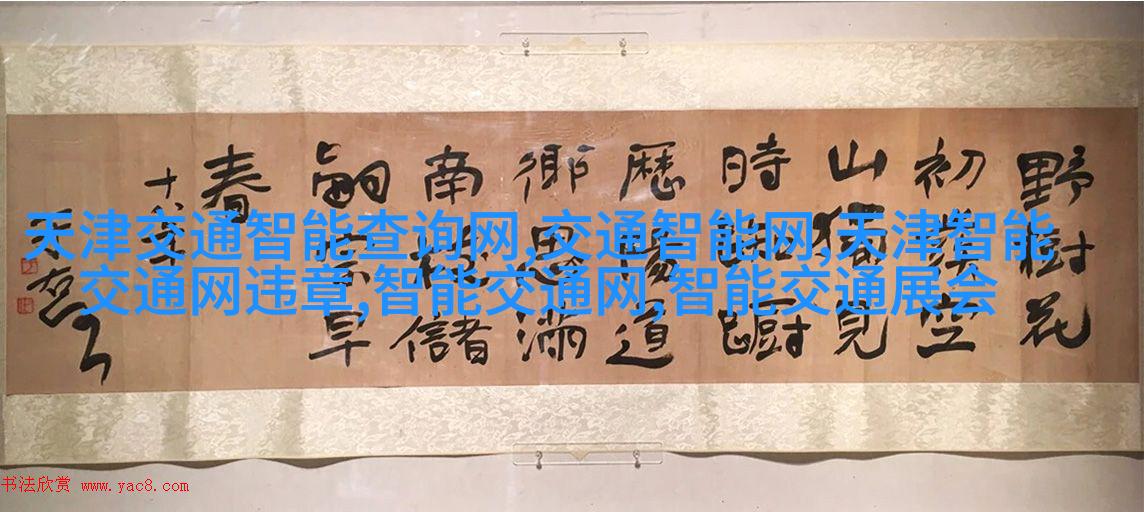 野樹花
初發空
山獨見
時踟躕
歷陽道
鄉思滿
南枝儲
嗣宗早
春
天津交通智能查询网,交通智能网,天津智能
交通网违章,智能交通网,智能交通展会
书法欣赏 www.yac8.com